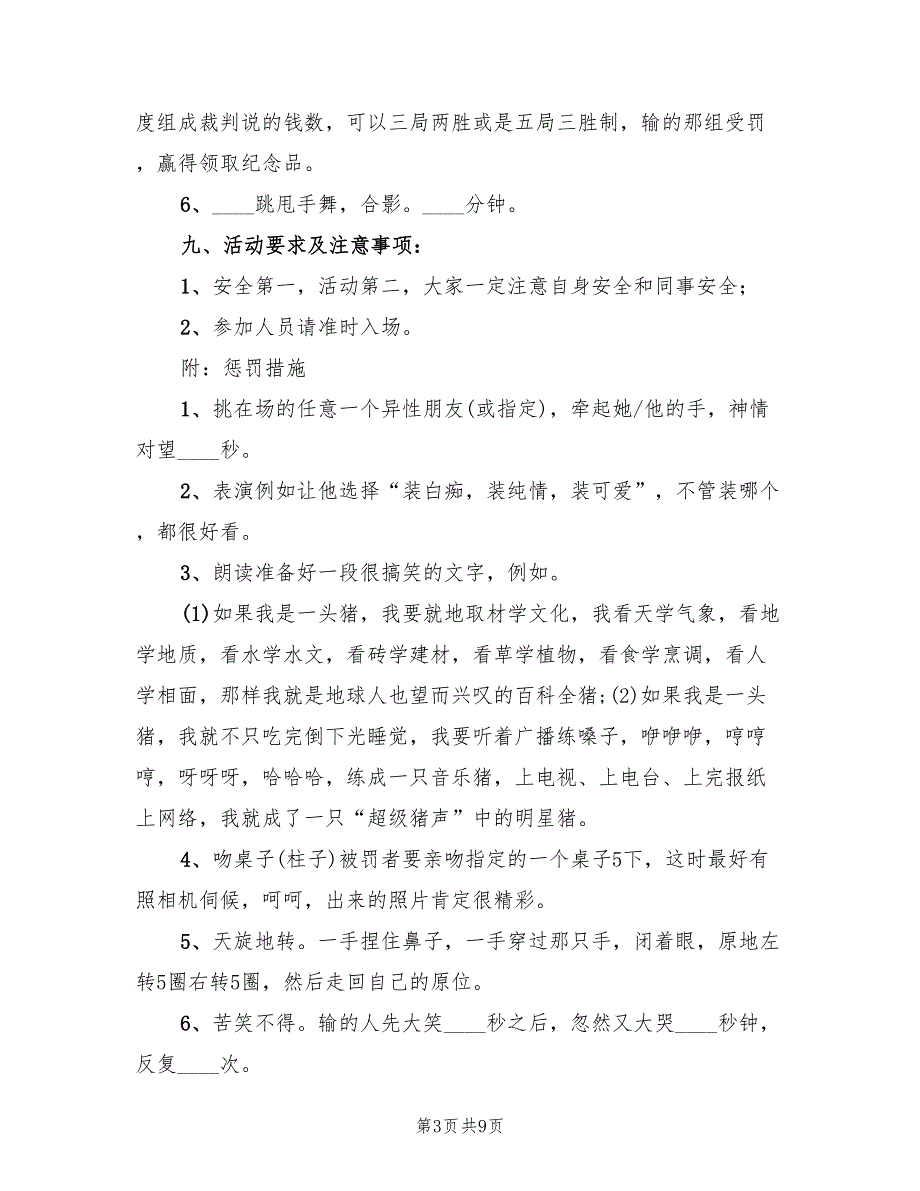 度组成裁判说的钱数，可以三局两胜或是五局三胜制，输的那组受罚
，赢得领取纪念品。
6、____跳甩手舞，合影。____分钟。
九、活动要求及注意事项：
1、安全第一，活动第二，大家一定注意自身安全和同事安全；
2、参加人员请准时入场。
附：惩罚措施
1、挑在场的任意一个异性朋友(或指定)，牵起她/他的手，神情
对望____秒。
2、表演例如让他选择“装白痴，装纯情，装可爱”，不管装哪个
，都很好看。
3、朗读准备好一段很搞笑的文字，例如。
(1)如果我是一头猪，我要就地取材学文化，我看天学气象，看地
学地质，看水学水文，看砖学建材，看草学植物，看食学烹调，看人
学相面，那样我就是地球人也望而兴叹的百科全猪;(2)如果我是一头
猪，我就不只吃完倒下光睡觉，我要听着广播练嗓子，咿咿咿，哼哼
哼，呀呀呀，哈哈哈，练成一只音乐猪，上电视、上电台、上完报纸
上网络，我就成了一只“超级猪声”中的明星猪。
4、吻桌子(柱子)被罚者要亲吻指定的一个桌子5下，这时最好有
照相机伺候，呵呵，出来的照片肯定很精彩。
5、天旋地转。一手捏住鼻子，一手穿过那只手，闭着眼，原地左
转5圈右转5圈，然后走回自己的原位。
6、苦笑不得。输的人先大笑____秒之后，忽然又大哭____秒钟，
反复____次。
第3页共9页